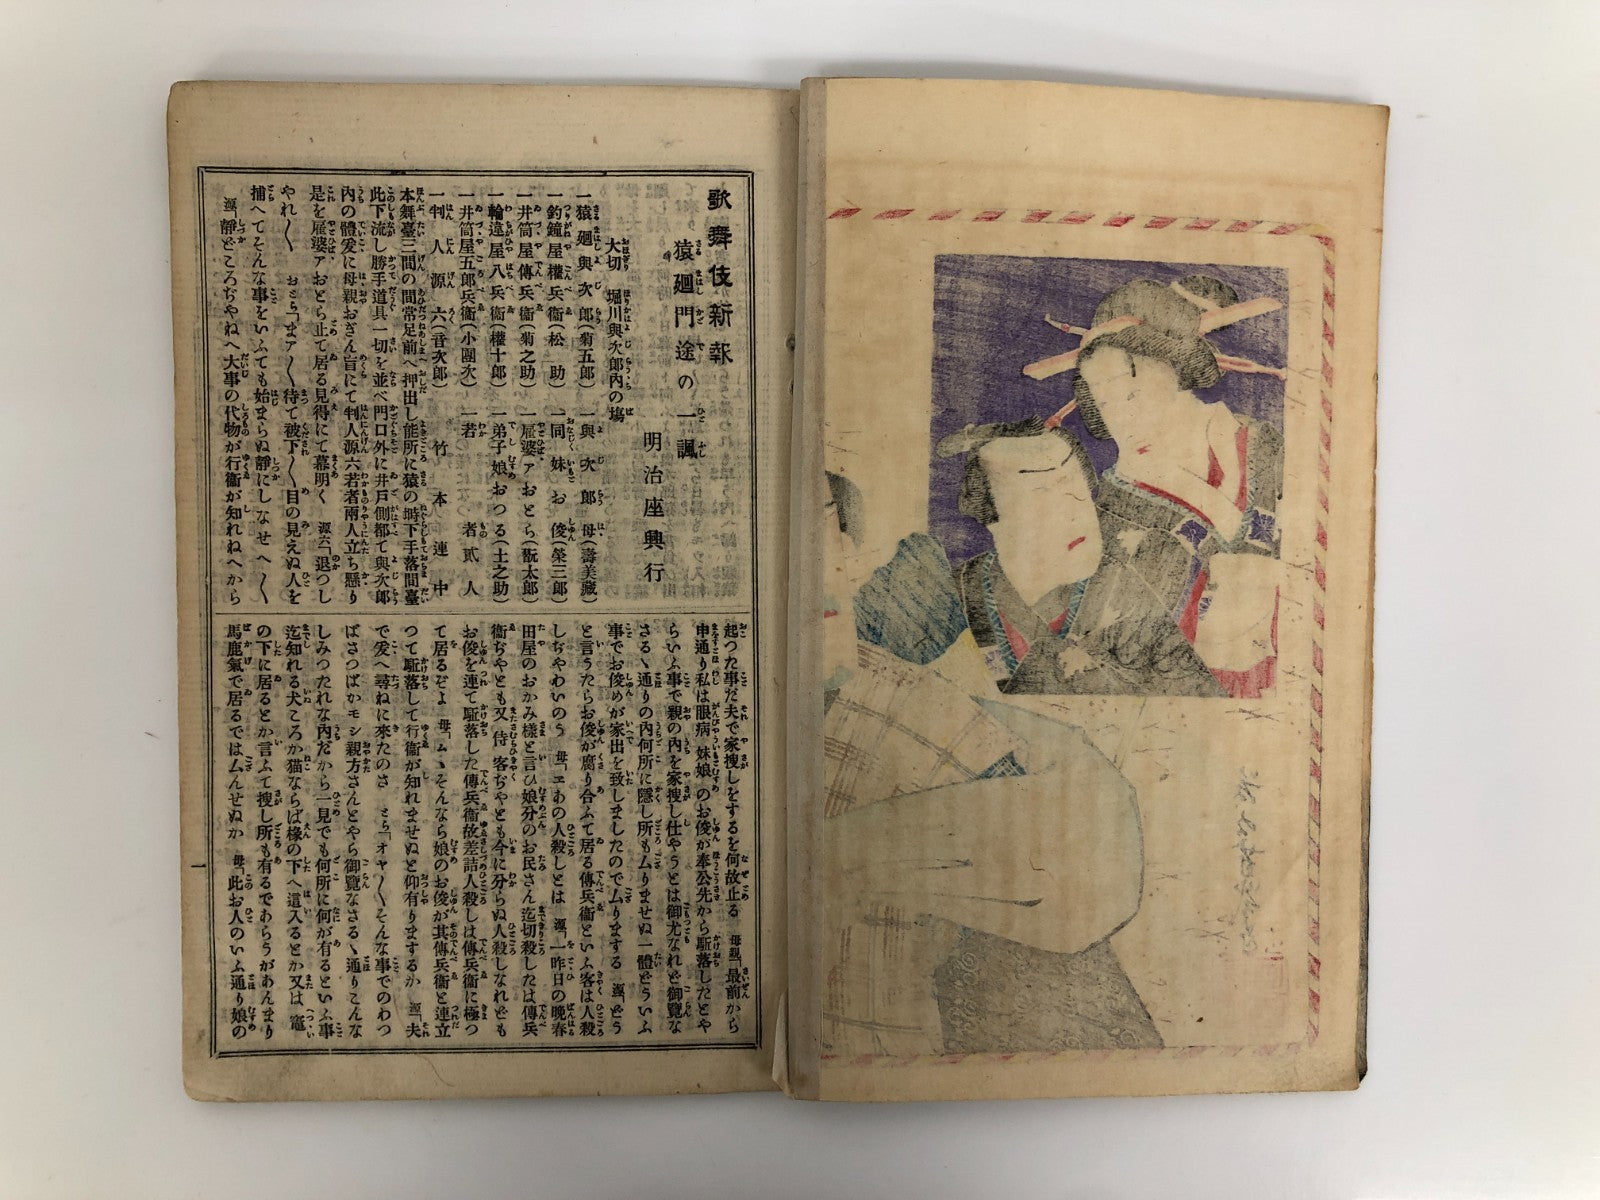 歌舞伎新報
猿廻門途の一諷
明治座興行
大切 堀川與次郎內の塲
一猿廻與次郎(菊五郎) 一與次郎 母(壽美藏)
一釣鐘屋權兵衞(松 助) 一同 妹 お 俊(榮三郎)
一井筒屋傳兵衞(菊之助) 一雇婆アおとら(翫太郎)
一輪違屋八兵衞(權十郎) 一弟子娘おつる(土之助)
一井筒屋五郎兵衞(小團次) 一若 者 貳 人
一判人源六(音次郎) 竹本連中
本舞臺三間の間常足前へ押出し能所に猿の塒下手落間臺
此下流し勝手道具一切を並べ門口外に井戸側都て與次郎
內の體爰に母親おぎん盲にて判人源六若者兩人立ち懸り
是を雇婆アおとら止て居る見得にて幕明く 源六「退つし
やれ〱 おとら「まア〱待て被下〱目の見えぬ人を
捕へてそんな事をいふても始まらぬ靜にしなせへ〱
源「靜どころぢやねへ大事の代物が行衞が知れねへから
起つた事だ夫で家捜しをするを何故止る 母親「最前から
申通り私は眼病 妹娘のお俊が奉公先から駈落したとや
らいふ事で親の內を家捜し仕やうとは御尤なれど御覽な
さるゝ通りの內何所に隱し所もムりませぬ一體どういふ
事でお俊めが家出を致しましたのでムりまする 源「どう
と言うたらお俊が腐り合ふて居る傳兵衞といふ客は人殺
しぢやわいのう 母「エあの人殺しとは 源「一昨日の晩春
田屋のおかみ樣と言ひ娘分のお民さん迄切殺したは傳兵
衞ぢやとも又侍客ぢやとも今に分らぬ人殺しなれども
お俊を連て駈落した傳兵衞故差詰人殺しは傳兵衞に極つ
て居るぞよ 母「ムゝそんなら娘のお俊が其傳兵衞と連立
つて駈落して行衞が知れませぬと仰有りまするか 源「夫
で爰へ尋ねに來たのさ とら「オヤ〱そんな事でのわつ
ばさつぱかモシ親方さんとやら御覽なさるゝ通りこんな
しみつたれな內だから一見でも何所に何が有るといふ事
迄知れる犬ころか猫ならば椽の下へ這入るとか又は竈
の下に居るとか言ふて搜し所も有るであらうがあんまり
馬鹿氣て居るではムんせぬか 母「此お人のいふ通り娘の